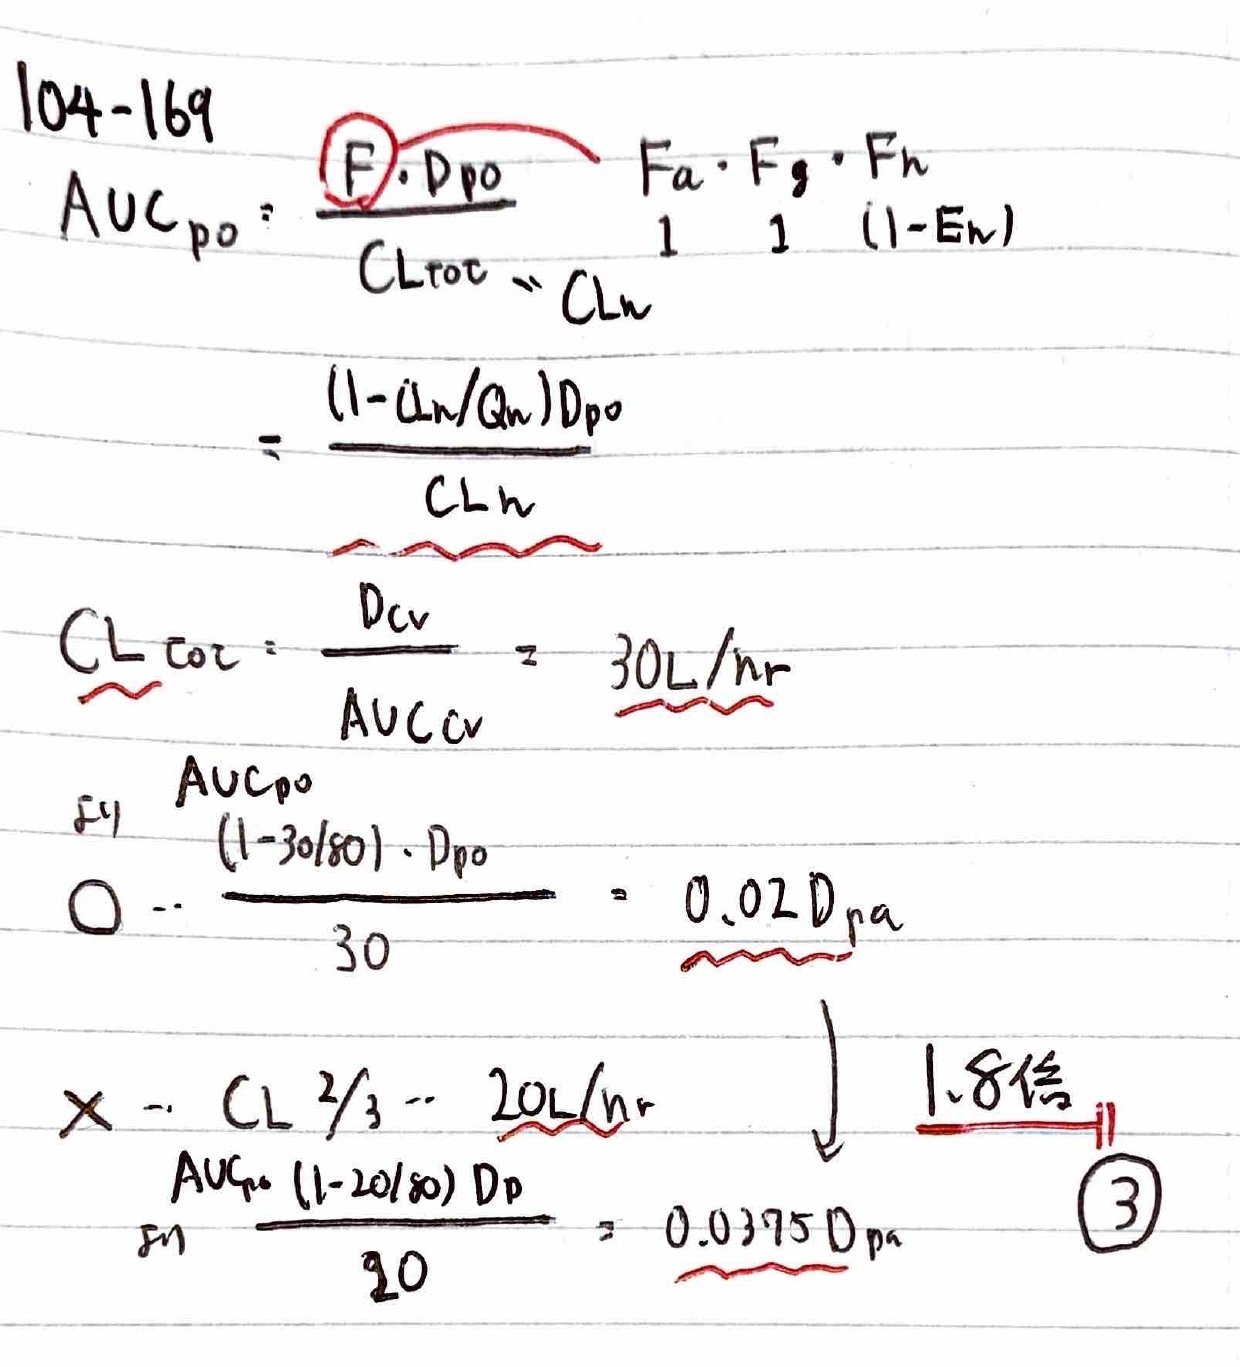 104-169
AUCpo = F・Dpo / CLtot ≒ CLh
Fa・Fg・Fh
1 1 (1-Eh)
= (1-CLh/Qh)Dpo / CLh
CLtot = Div / AUCiv = 30L/hr
より AUCpo
〇‥ (1-30/80)・Dpo / 30 = 0.02Dpo
× ‥ CL 2/3 ‥ 20L/hr
1.8倍
AUCpo (1-20/80) Dp / 20 = 0.0375Dpo
より
③